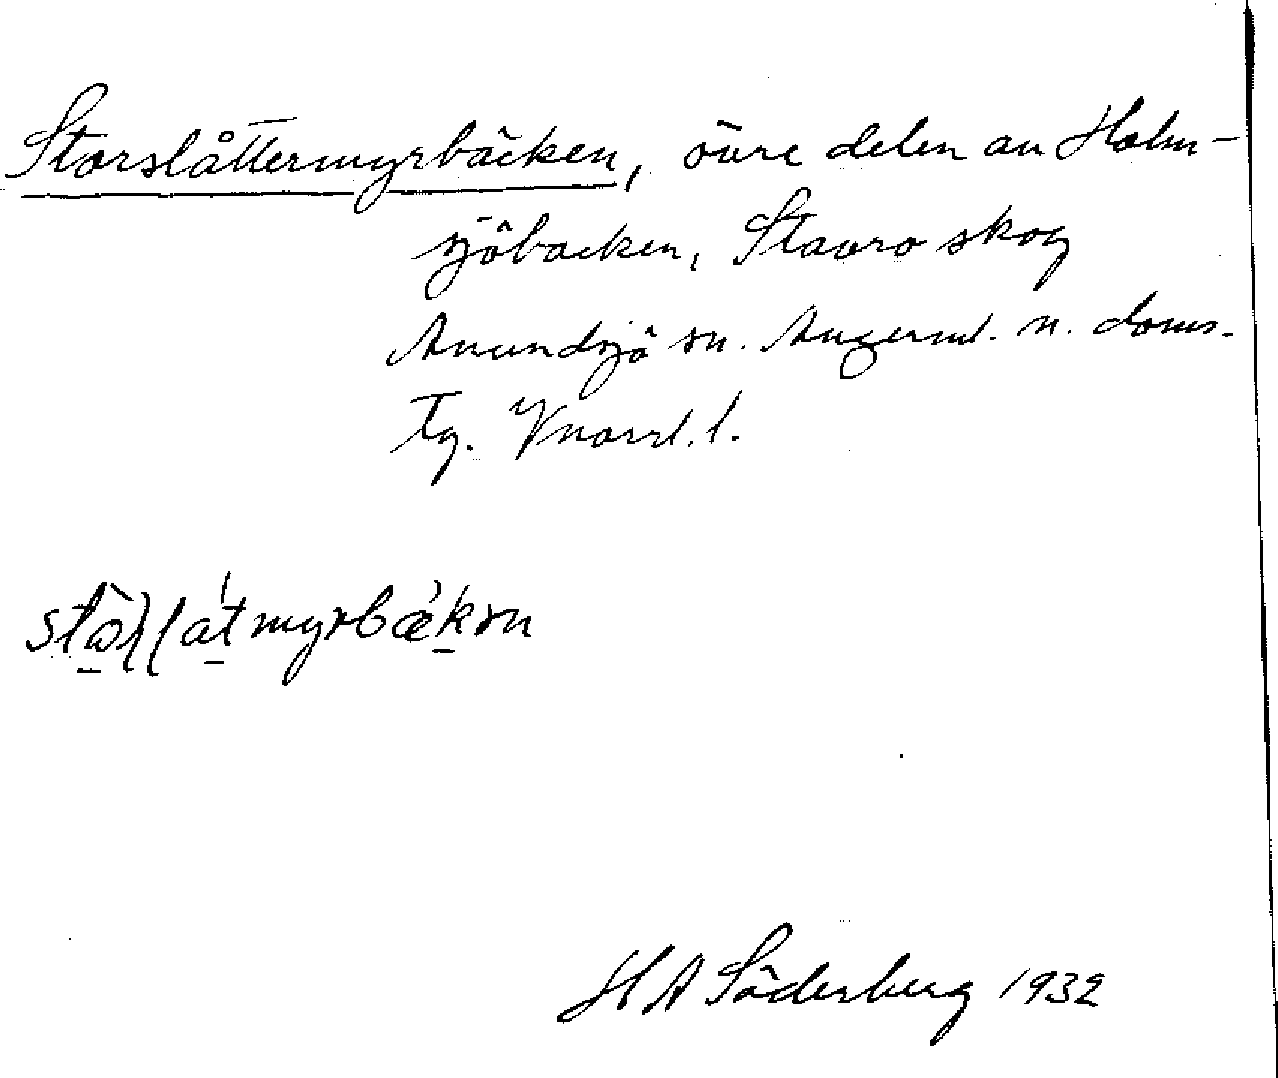 Storslåttermyrbäcken, övre delen av Holm-
sjöbäcken, Stavro skog
Anundsjö sn. Ångerml. n. doms-
tg. Vnorrl. l.
H A Söderberg 1932